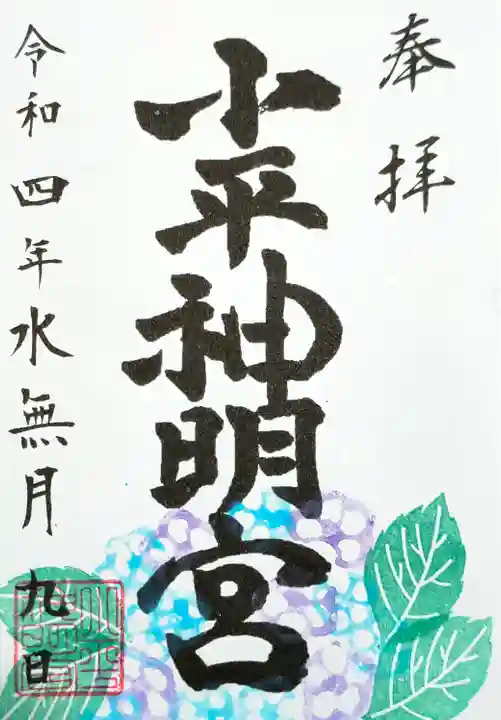 奉拝
小平神明宮
令和四年水無月九日